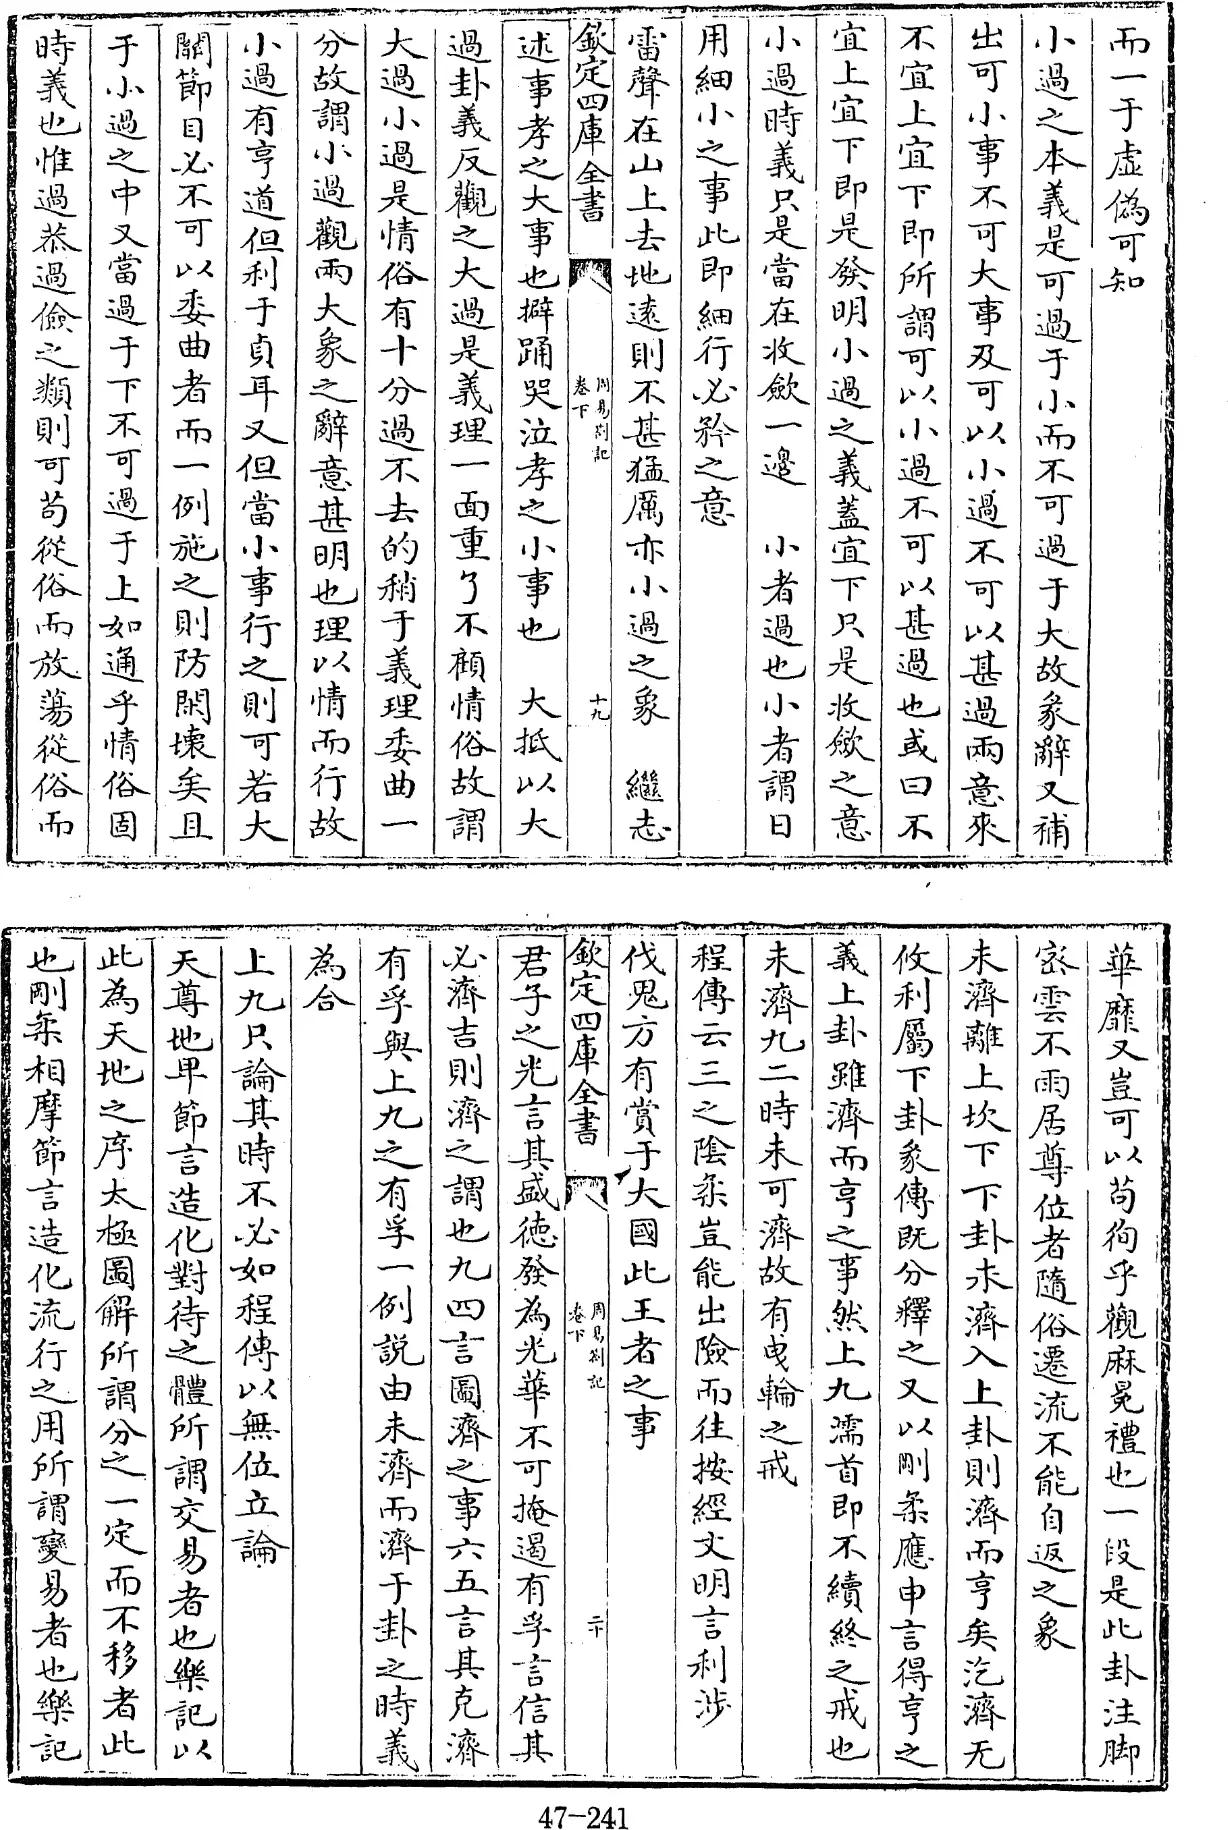 而一于虛偽可知
小過之本義是可過于小而不可過于大故彖辭又補
出可小事不可大事及可以小過不可以甚過兩意來
不宜上宜下即所謂可以小過不可以甚過也或曰不
宜上宜下即是發明小過之義蓋宜下只是收斂之意
小過時義只是當在收斂一邊　小者過也小者謂日
用細小之事此即細行必矜之意
雷聲在山上去地遠則不甚猛厲亦小過之象　繼志
欽定四庫全書
周易劄記
卷下
十九
述事孝之大事也擗踊哭泣孝之小事也　大抵以大
過卦義反觀之大過是義理一面重了不顧情俗故謂
大過小過是情俗有十分過不去的稍于義理委曲一
分故謂小過觀兩大象之辭意甚明也理以情而行故
小過有亨道但利于貞耳又但當小事行之則可若大
關節目必不可以委曲者而一例施之則防閑壞矣且
于小過之中又當過于下不可過于上如通乎情俗固
時義也惟過恭過儉之類則可茍從俗而放蕩從俗而
華靡又豈可以茍徇乎觀麻冕禮也一段是此卦注脚
宻雲不雨居尊位者隨俗遷流不能自返之象
未濟離上坎下下卦未濟入上卦則濟而亨矣汔濟无
攸利屬下卦彖傳既分釋之又以剛柔應申言得亨之
義上卦雖濟而亨之事然上九濡首即不續終之戒也
未濟九二時未可濟故有曳輪之戒
程傳云三之陰柔豈能出險而往按經文明言利涉
伐鬼方有賞于大國此王者之事
欽定四庫全書
周易劄記
卷下
二十
君子之光言其盛徳發為光華不可掩遏有孚言信其
必濟吉則濟之謂也九四言圖濟之事六五言其克濟
有孚與上九之有孚一例説由未濟而濟于卦之時義
為合
上九只論其時不必如程傳以無位立論
天尊地卑節言造化對待之體所謂交易者也樂記以
此為天地之序太極圖解所謂分之一定而不移者此
也剛柔相摩節言造化流行之用所謂變易者也樂記
47-241